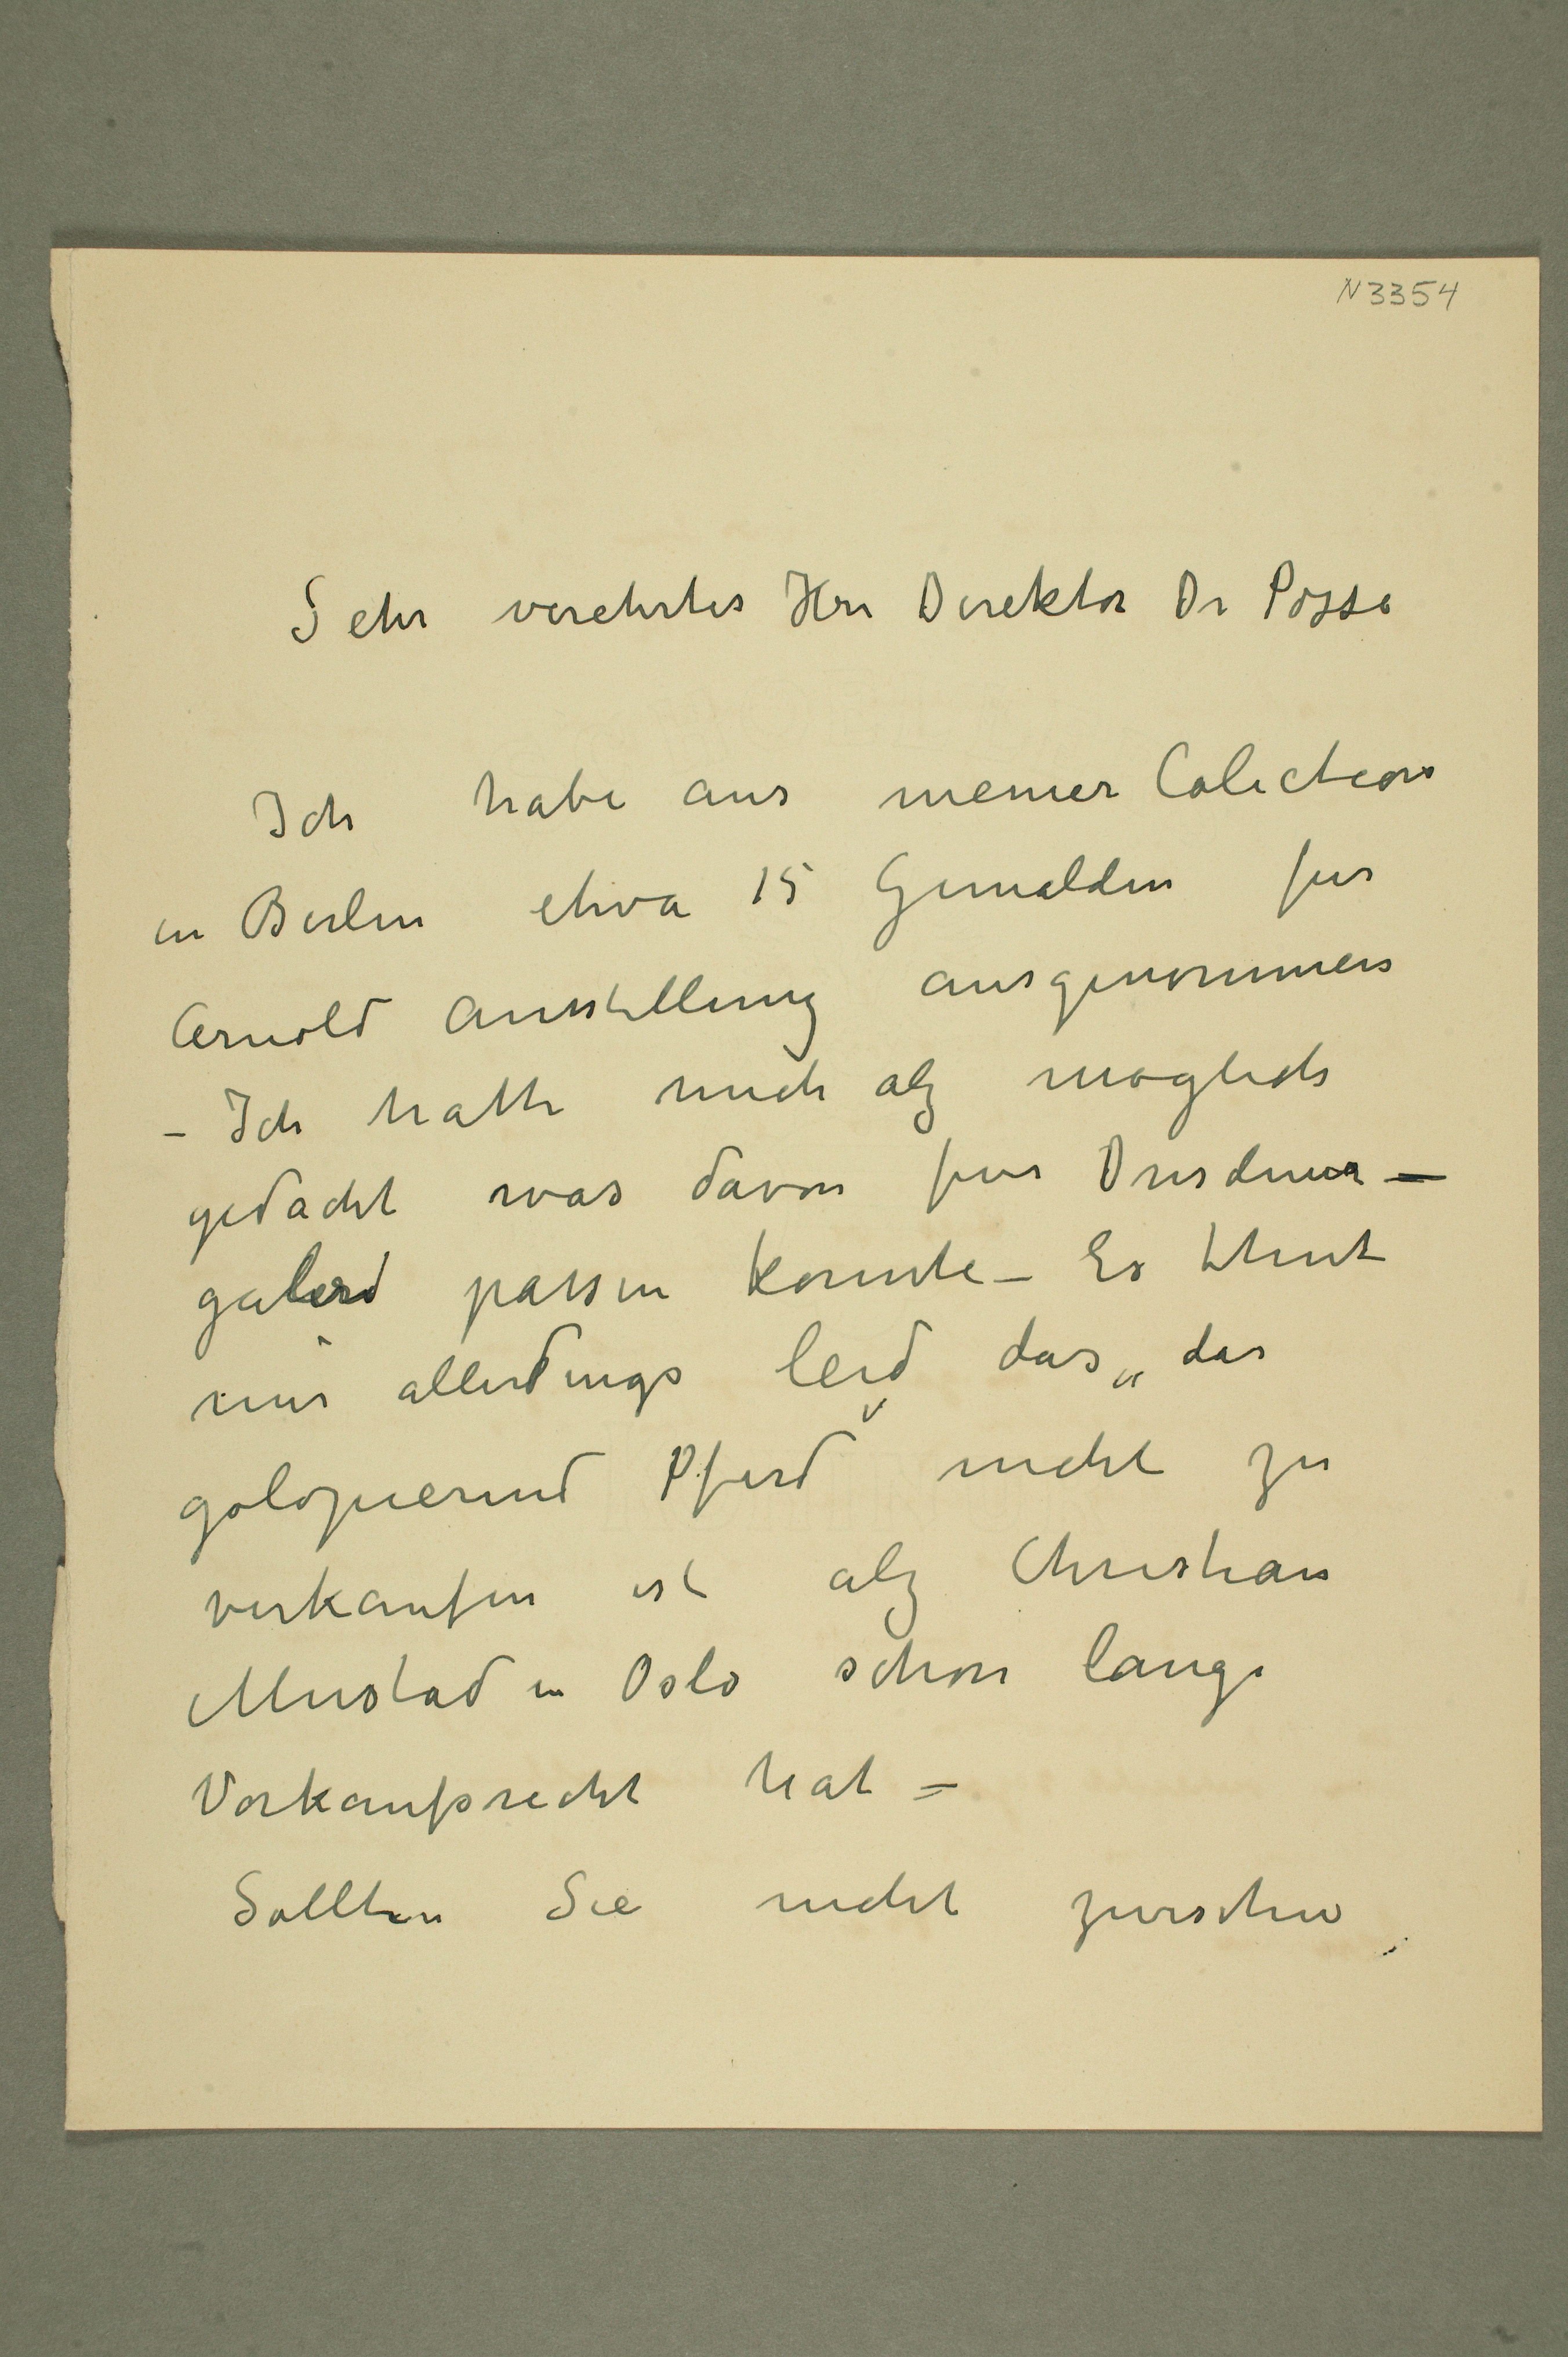 N 3354
Sehr verehrter Herr Direktor Dr Posse
Ich habe aus meiner Colection
in Berlin etwa 15 Gemälden fur
Arnold Ausstellung ausgenommen
– Ich hatte mich alz moglich
gedacht was davon fur Dresdener –
galerd passen konnte – Es thut
mir allerdings leid das „das
golopierend Pferd" nicht zu
verkaufen ist alz Christian
Mustad in Oslo schon lange
Vorkaufsrecht hat –
Sollten Sie nicht zwischen